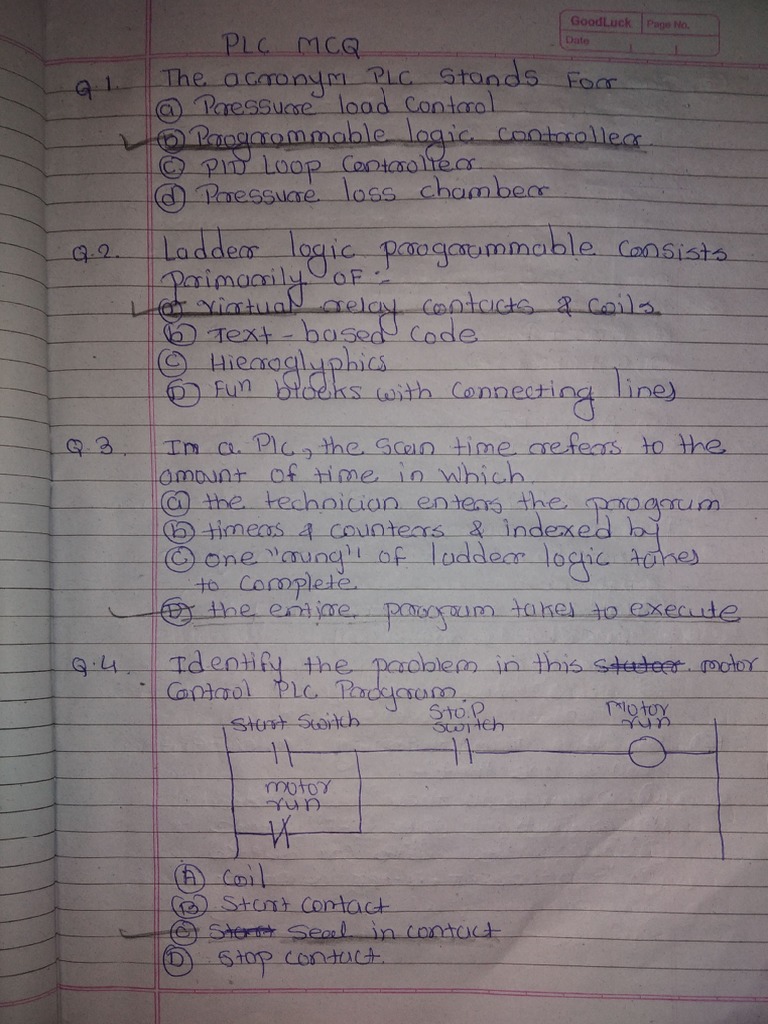 GoodLuck Page No.
Date
PLC MCQ
Q 1. The acronym PLC stands For
(a) Pressure load control
(b) Programmable logic controller
(c) PID Loop controller
(d) Pressure loss chamber
Q.2. Ladder logic programmable consists
primarily of :-
(a) virtual relay contacts & coils
(b) Text-based code
(c) Hieroglyphics
(D) Fun blocks with connecting lines
Q.3. In a PLC, the scan time refers to the
amount of time in which
(a) the technician enters the program
(b) timers & counters & indexed by
(c) one "rung" of ladder logic takes
to complete
(D) the entire program takes to execute
Q.4. Identify the problem in this motor
Control PLC Program.
Start Switch Stop Switch Motor run
motor run
(A) Coil
(B) Start contact
(C) Start Seal in contact
(D) Stop contact.